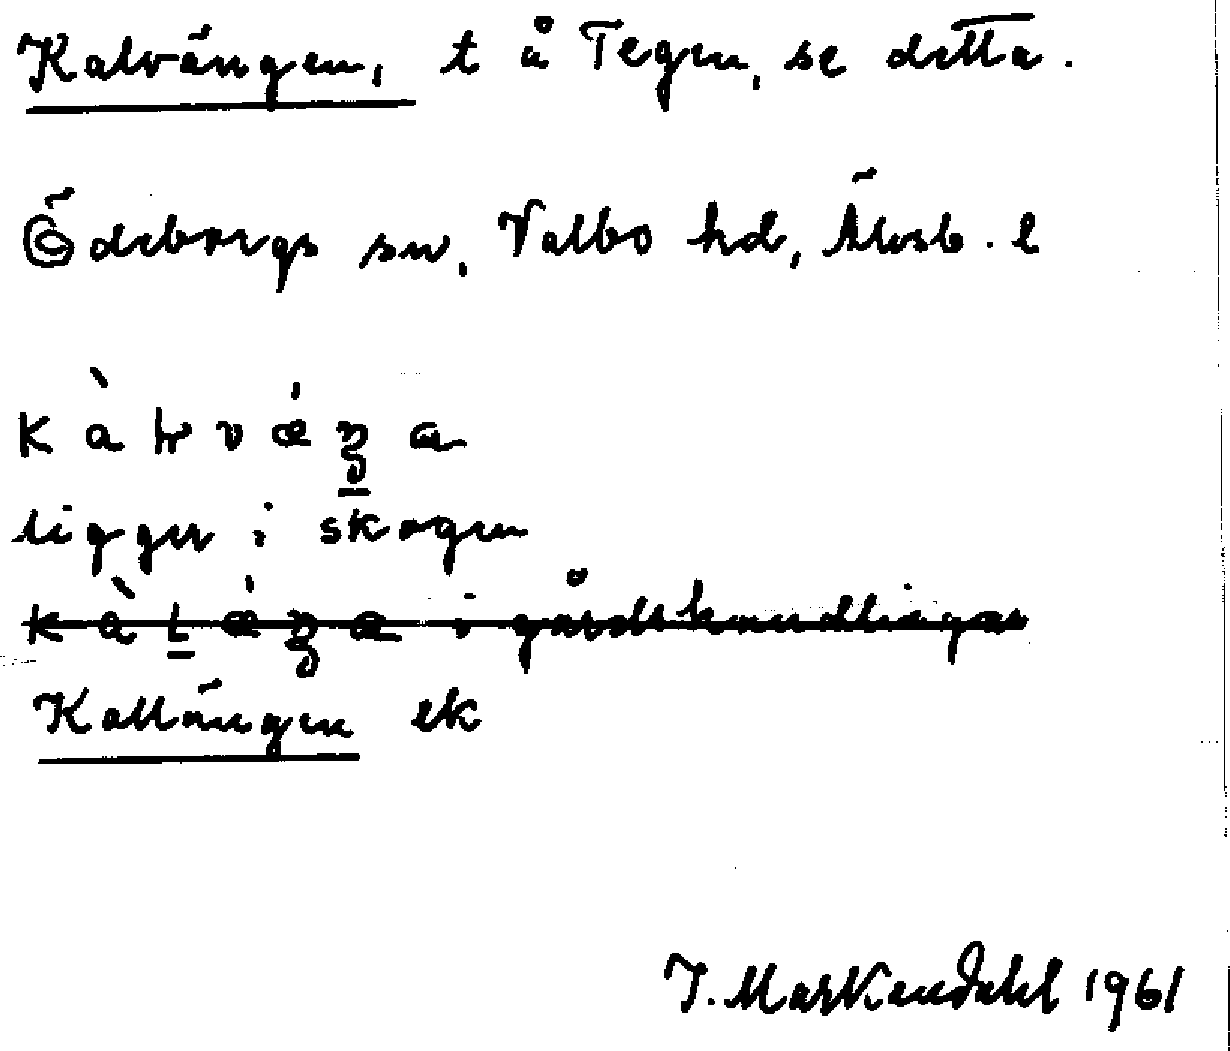 Kalvängen, t å Tegen, se detta.
Ödeborgs sn, Valbo hd, Älvsb. l
kàɫvæ̀ŋa
ligger i skogen
kàlæ̀ŋa i gårdshandlingar
Kallängen ek
J. Markendahl 1961